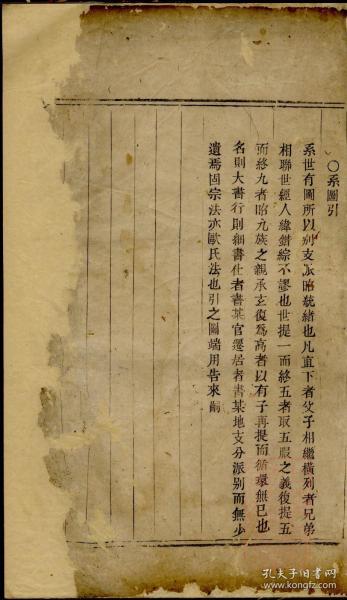 ○系圖引
系世有圖所以别支派昭統緒也凡直下者父子相繼橫列者兄弟
相聯世經人緯錯綜不謬也世提一而終五者取五服之義復提五
而終九者昭九族之親承玄復爲高者以有子再提而循環無已也
名則大書行則細書仕者書某官遷居者書某地支分派别而無少
遺焉固宗法亦歐氏法也引之圖端用告來嗣
孔夫子旧书网